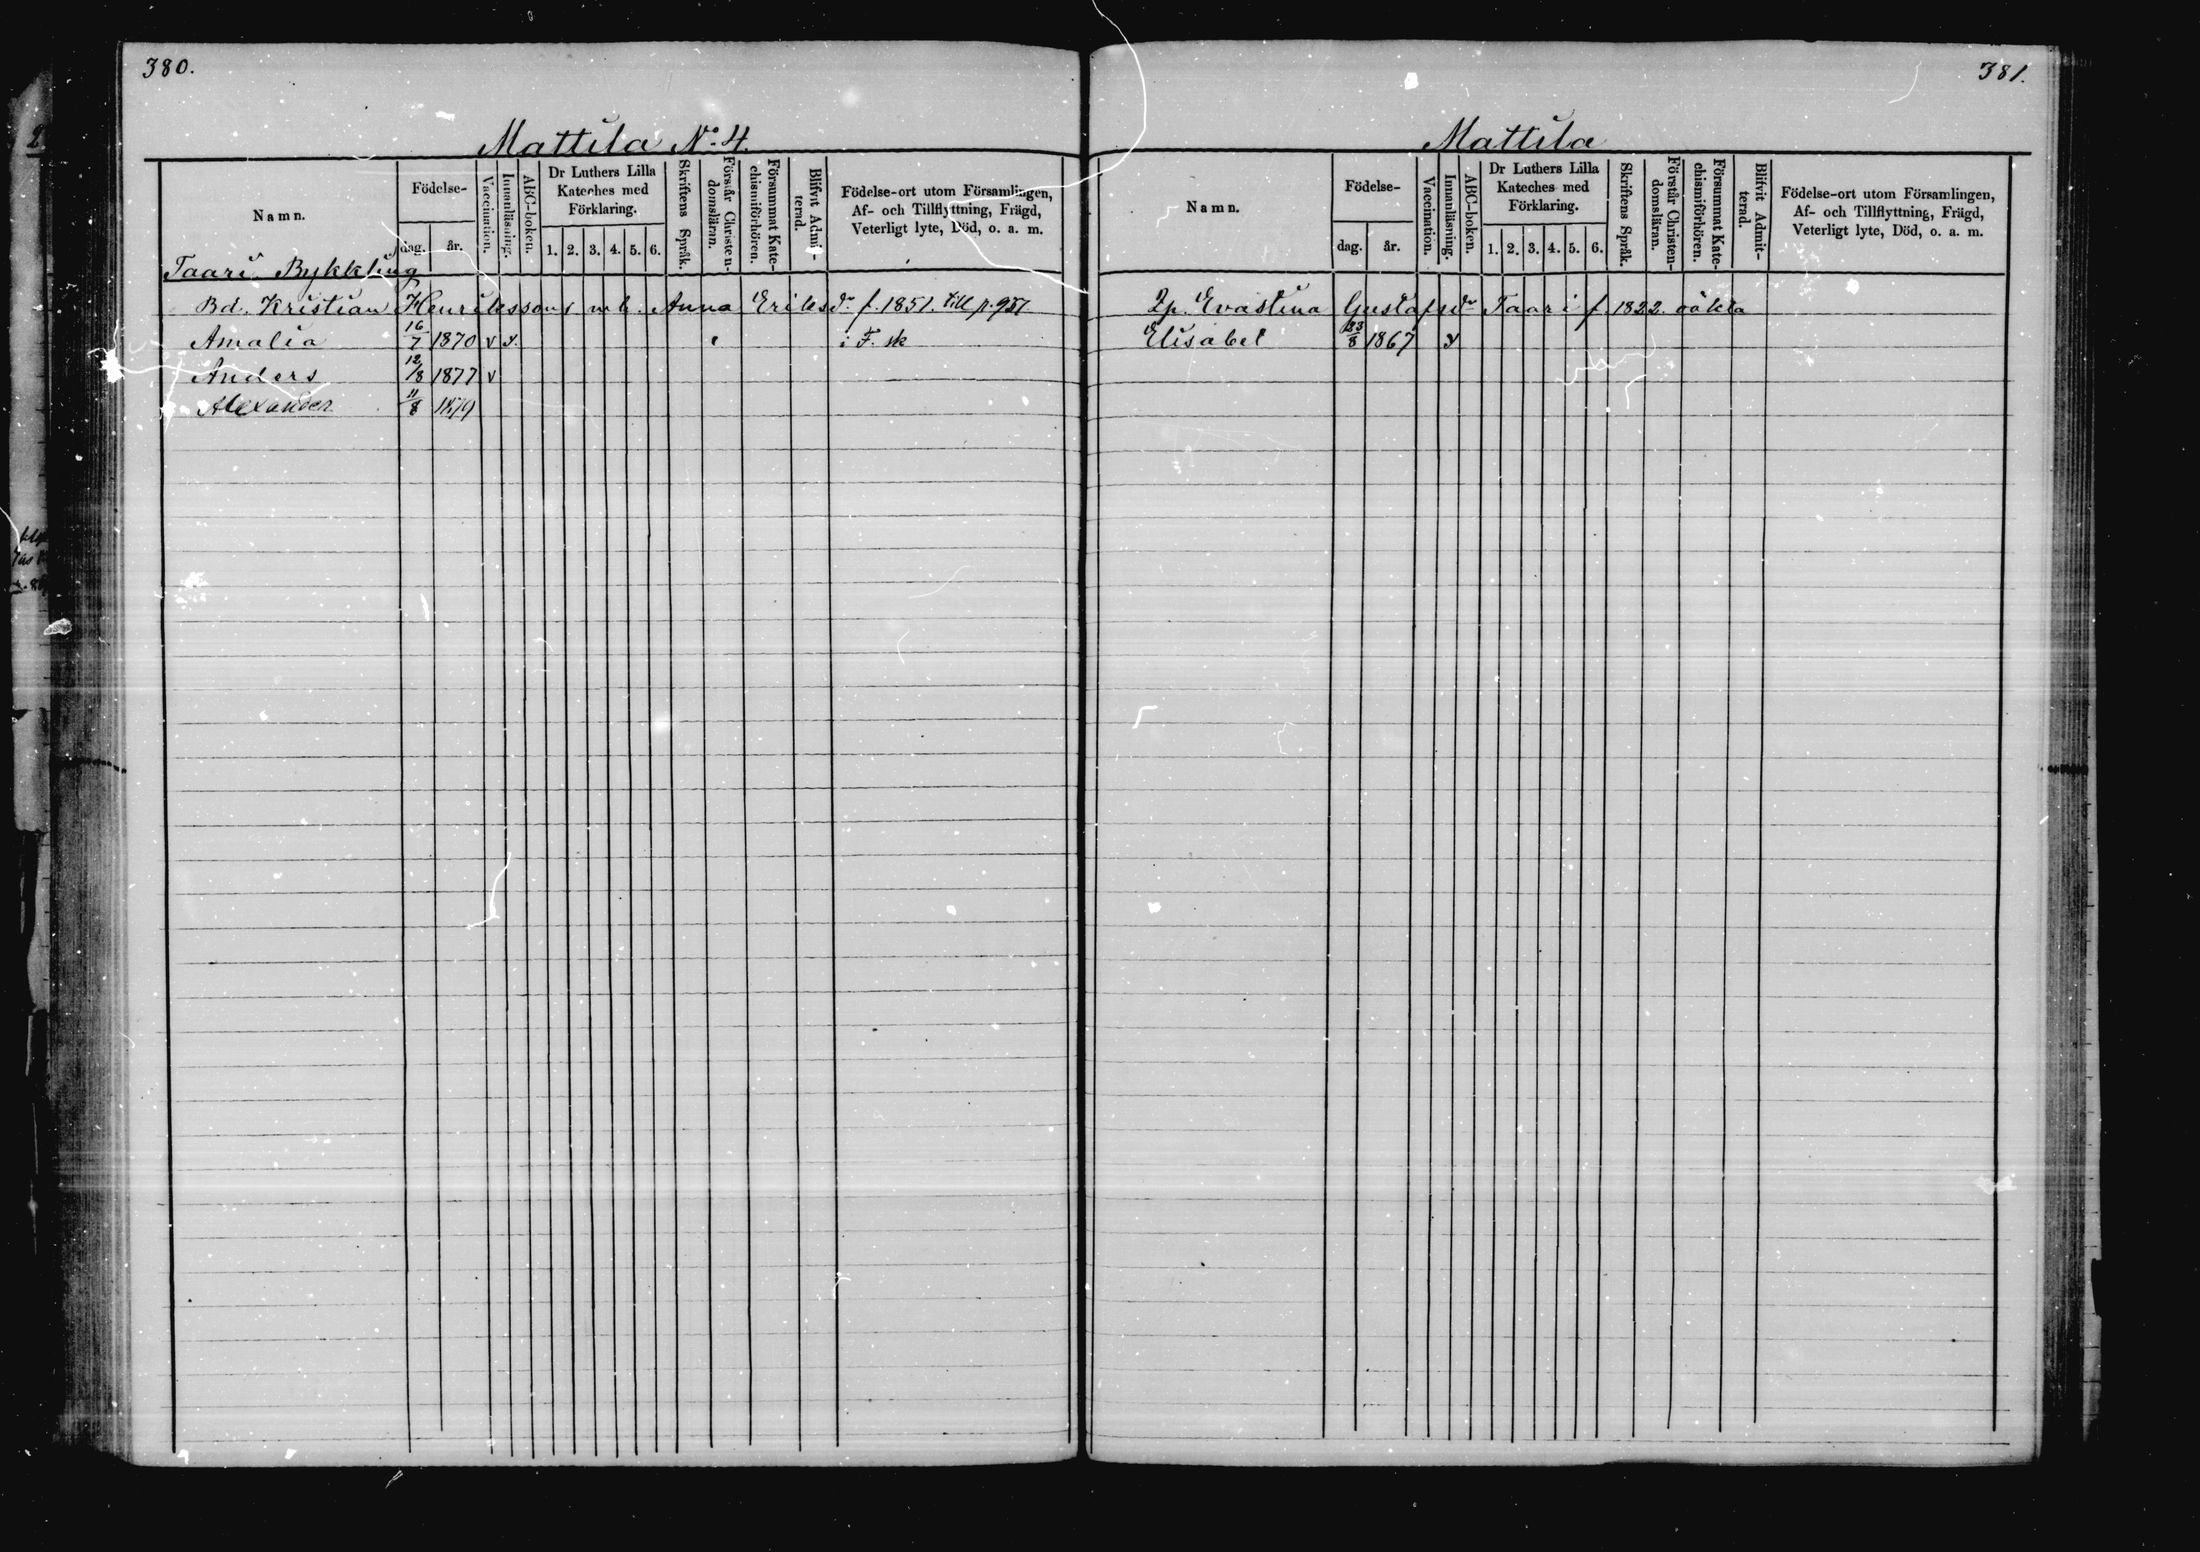 380.
Mattila No. 4.
Namn.
Födelse-
dag. år.
Vaccination.
Innanläsning.
ABC-boken.
Dr Luthers Lilla
Kateches med
Förklaring.
1. 2. 3. 4. 5. 6.
Skriftens Språk.
Förstår Christen-
domsläran.
Försummat Kate-
chismiförhören.
Blifvit Admit-
terad.
Födelse-ort utom Församlingen,
Af- och Tillflyttning, Frägd,
Veterligt lyte, Död, o. a. m.
Taari Bykkling
Bd. Kristian Henrikssons m h. Anna Eriksdr f. 1851. till p. 951
Amalia 16/7 1870 v v i F. sk
Anders 12/8 1877 v
Alexander 11/8 1879
381.
Mattila
Namn.
Födelse-
dag. år.
Vaccination.
Innanläsning.
ABC-boken.
Dr Luthers Lilla
Kateches med
Förklaring.
1. 2. 3. 4. 5. 6.
Skriftens Språk.
Förstår Christen-
domsläran.
Försummat Kate-
chismiförhören.
Blifvit Admit-
terad.
Födelse-ort utom Församlingen,
Af- och Tillflyttning, Frägd,
Veterligt lyte, Död, o. a. m.
Evastina Gustafsdr Taari f. 1822. oäkta
Elisabet 23/8 1867 v